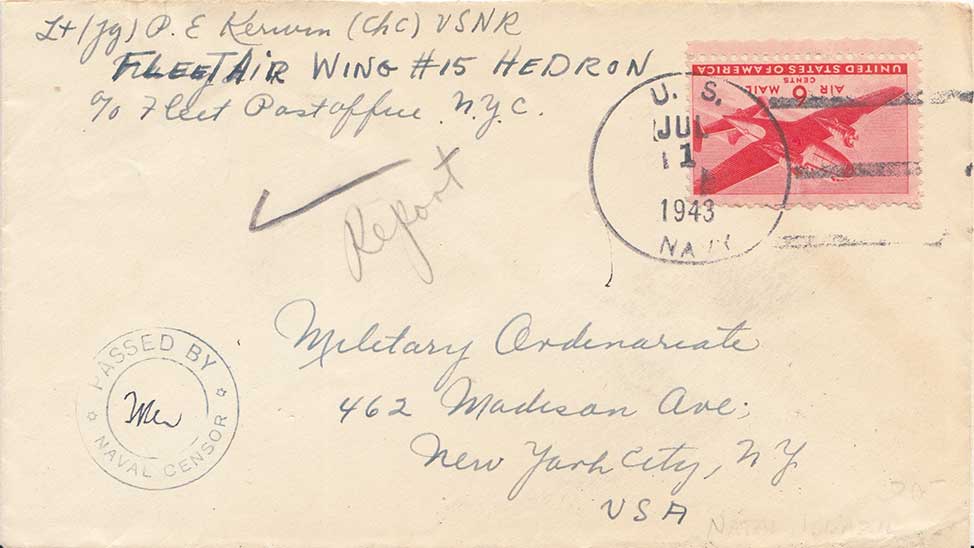 Lt (jg) P. E Kerwin (ChC) USNR
FLEET AIR WING #15 HEDRON
c/o Fleet Postoffice N.Y.C.
UNITED STATES OF AMERICA
6 CENTS
AIR MAIL
U. S.
JUL
1
1943
NAVY
Report
PASSED BY
NAVAL CENSOR
Military Ordinariate
462 Madison Ave;
New York City, N Y
USA